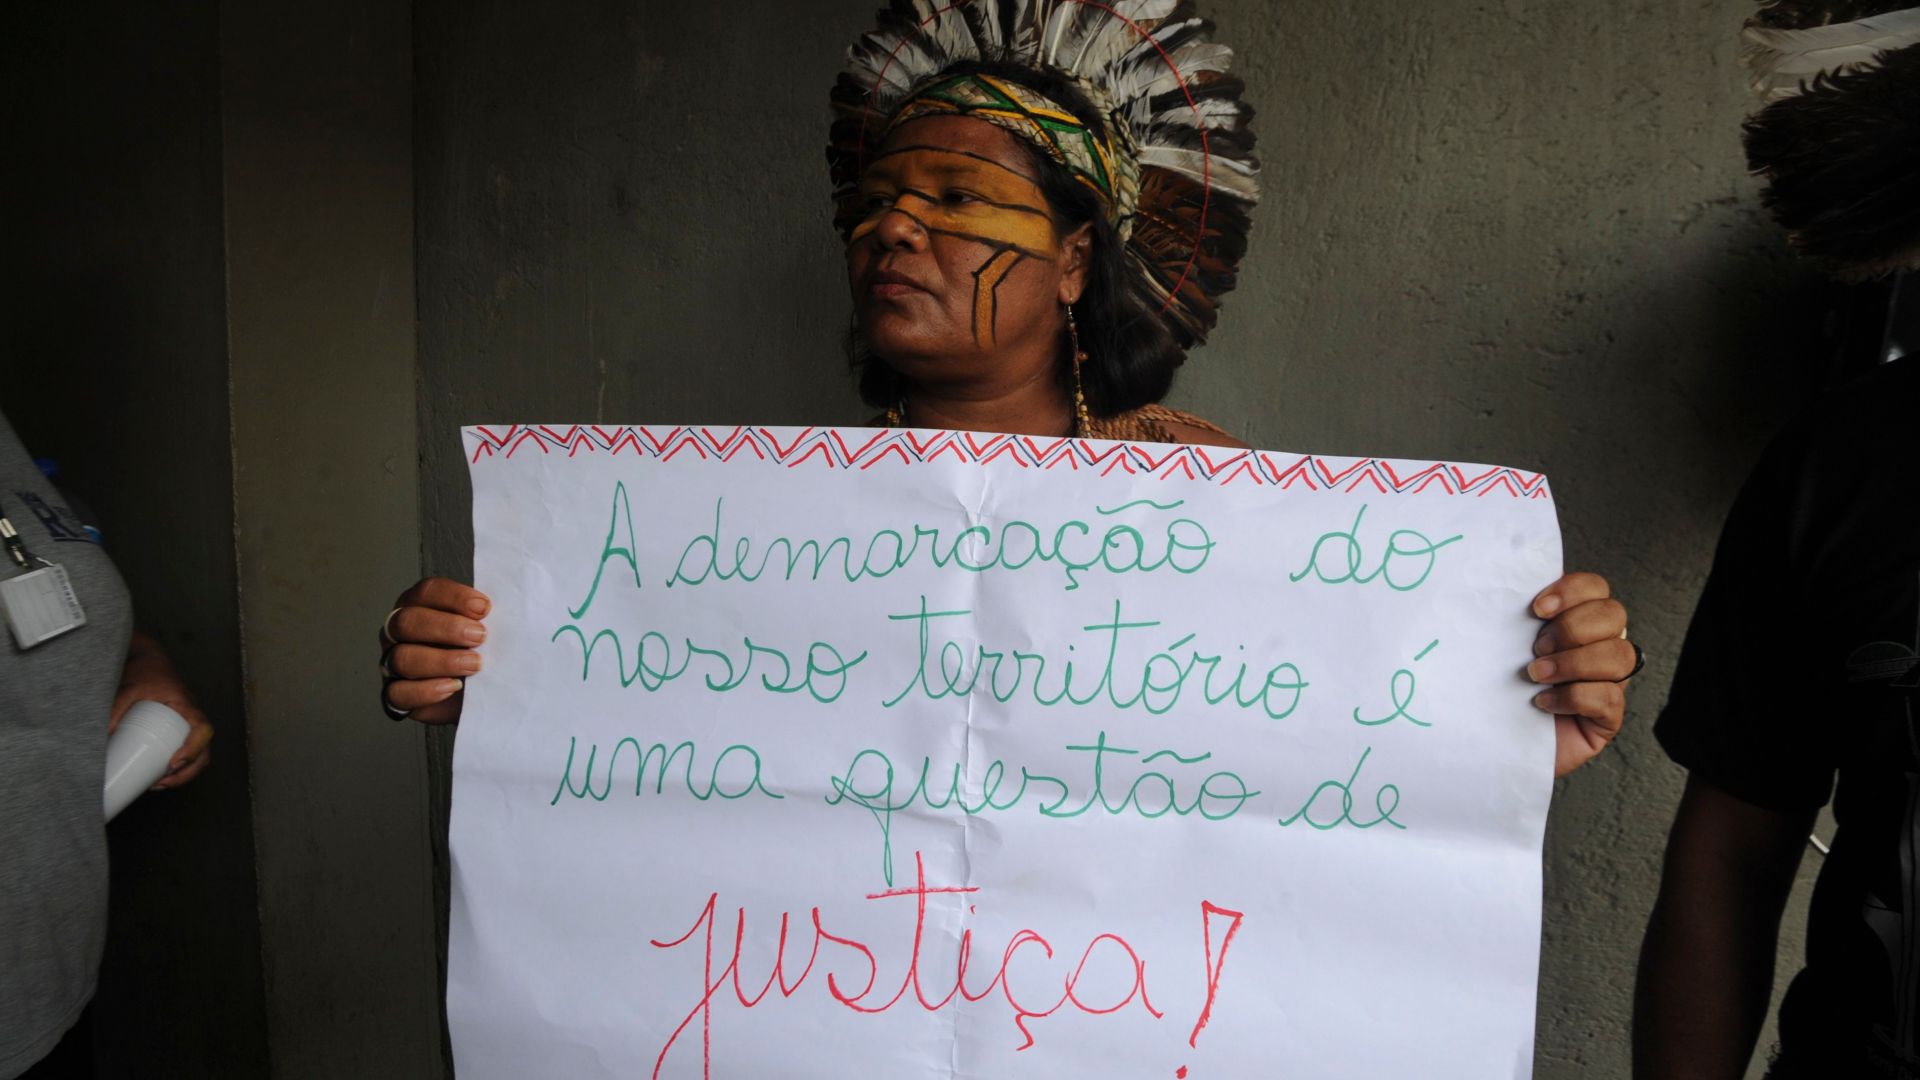 A demarcação do
nosso território é
uma questão de
justiça!